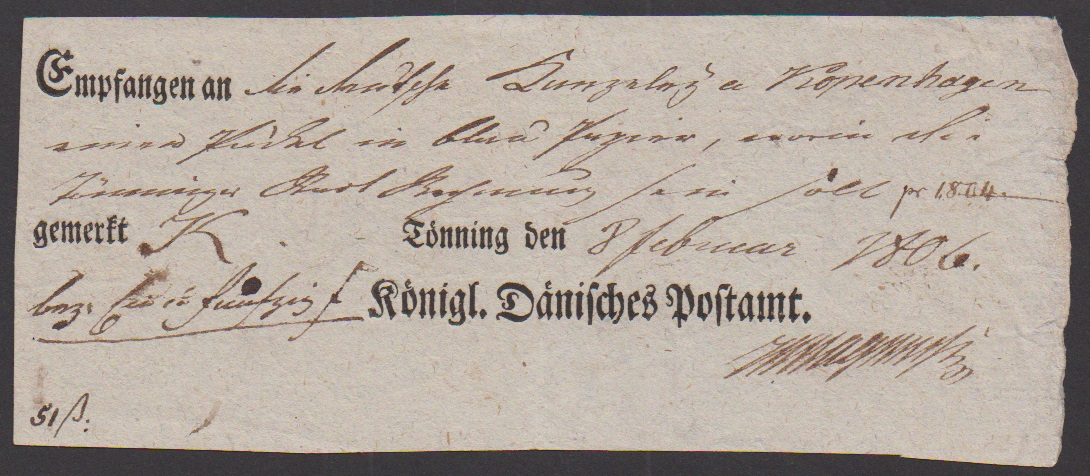 Empfangen an die deutsche Kanzeley a Kopenhagen
einen Päckel in blau Papier, worin die
Tönninger Rechnung sein soll pr 1804.
gemerkt K. Tönning den 8 februar 1806.
bez. Ein u fünfzig ß Königl. Dänisches Postamt.
51 ß.